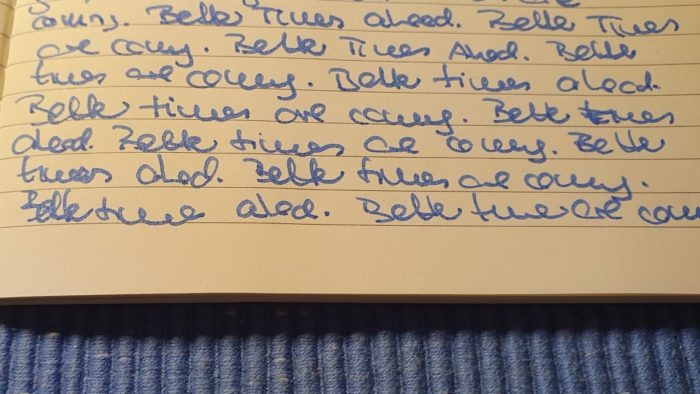 coming. Better Times ahead. Better Times
are coming. Better Times Ahead. Better
times are coming. Better times ahead.
Better times are coming. Better times
ahead. Better times are coming. Better
times ahead. Better times are coming.
Better times ahead. Better times are com